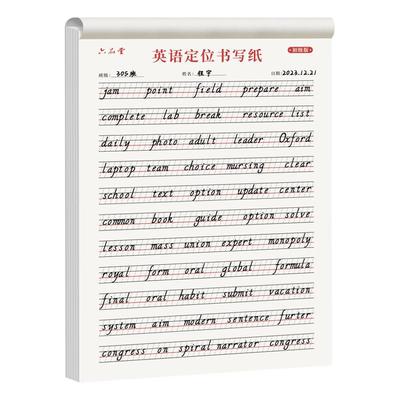 六品堂
英语定位书写纸 初级版
班级: 305班 姓名: 程宇 日期: 2023.12.21
jam point field prepare aim
complete lab break resource list
daily photo adult leader Oxford
laptop team choice mursing clear
school text option update center
common book guide option solve
lesson mass union expert monopoly
royal form oral global formula
final oral habit submit vacation
system aim modern sentence furter
congress on spiral narrator congress